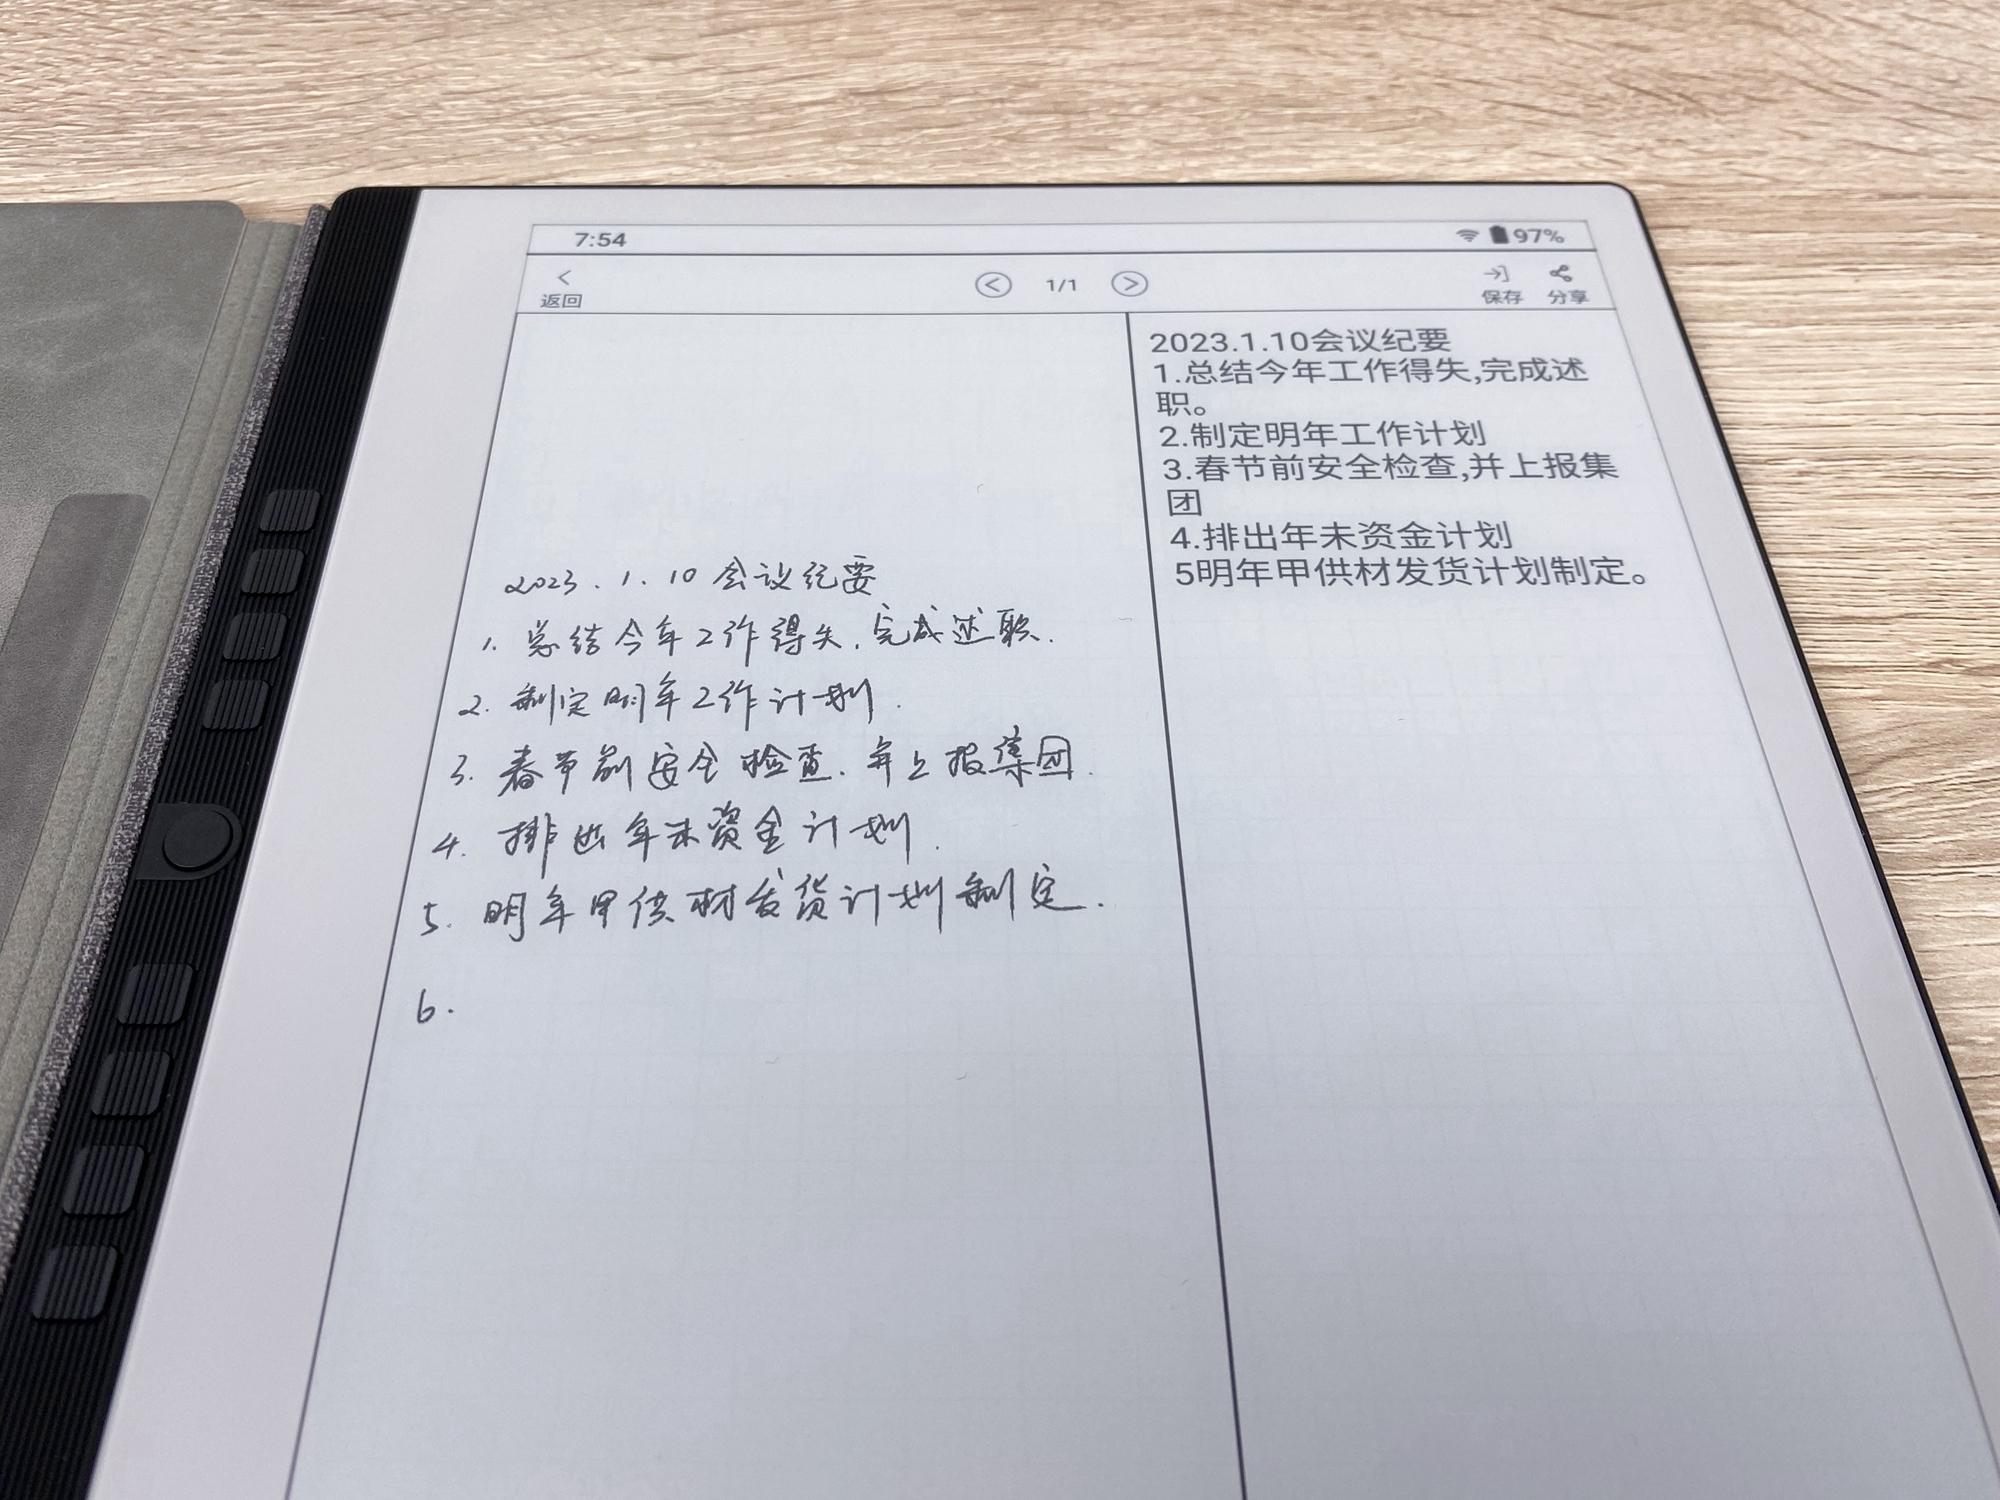 7:54
97%
返回
1/1
保存 分享
2023.1.10会议纪要
1. 总结今年工作得失.完成述职.
2. 制定明年工作计划.
3. 春节前安全检查.并上报集团.
4. 排出年末资金计划.
5. 明年甲供材发货计划制定.
6.
2023.1.10会议纪要
1.总结今年工作得失,完成述
职。
2.制定明年工作计划
3.春节前安全检查,并上报集
团
4.排出年未资金计划
5明年甲供材发货计划制定。